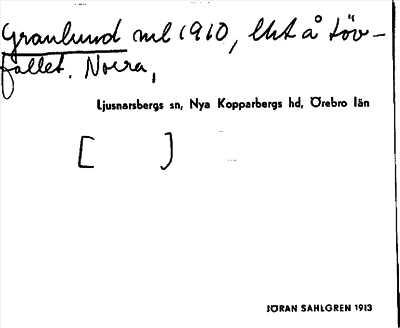 Granlund ml 1910, lht å Löv-
fallet. Norra,
Ljusnarsbergs sn, Nya Kopparbergs hd, Örebro län
[ ]
GÖRAN SAHLGREN 1913